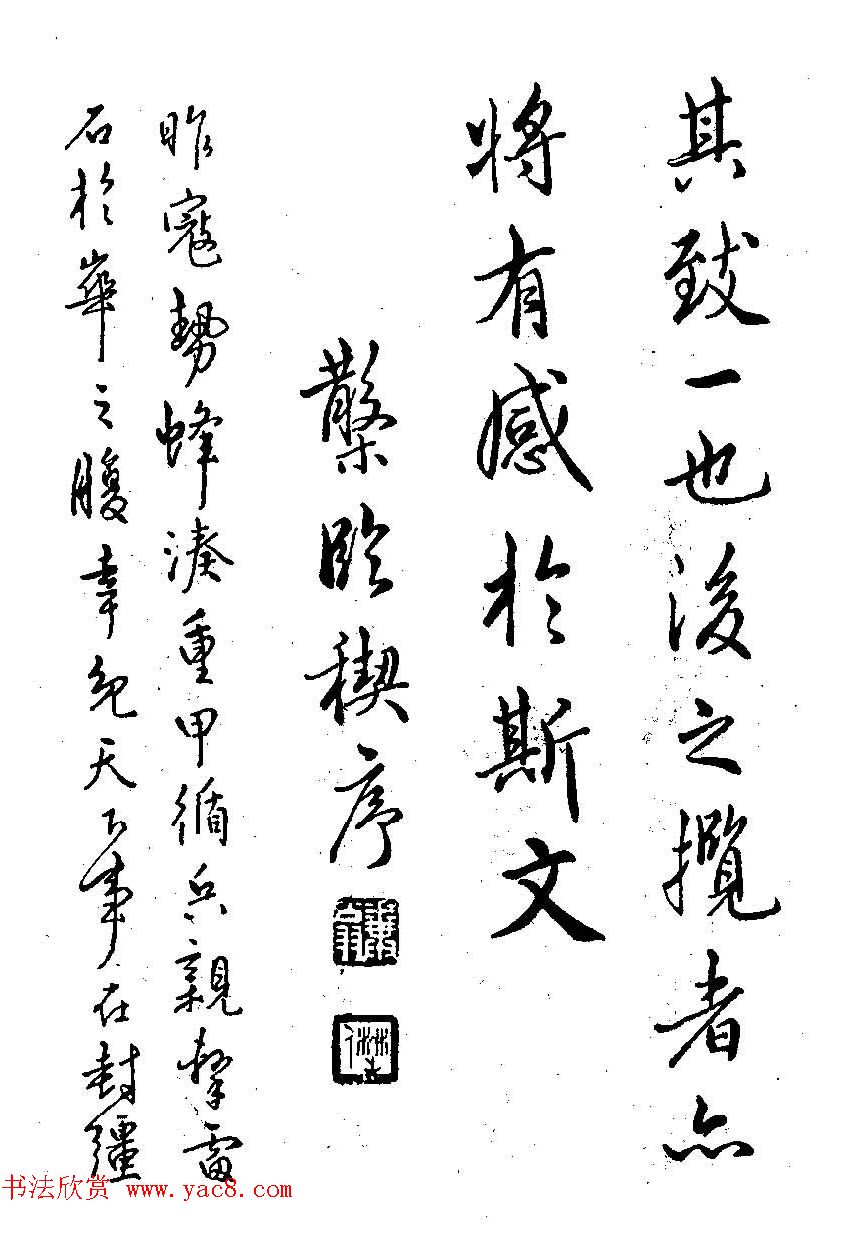 其致一也後之攬者亦
將有感於斯文
槃臨禊序
昨寇勢蜂湊重甲循兵親擊雷
石於華之腹幸免天下事在封疆
书法欣赏 www.yac8.com